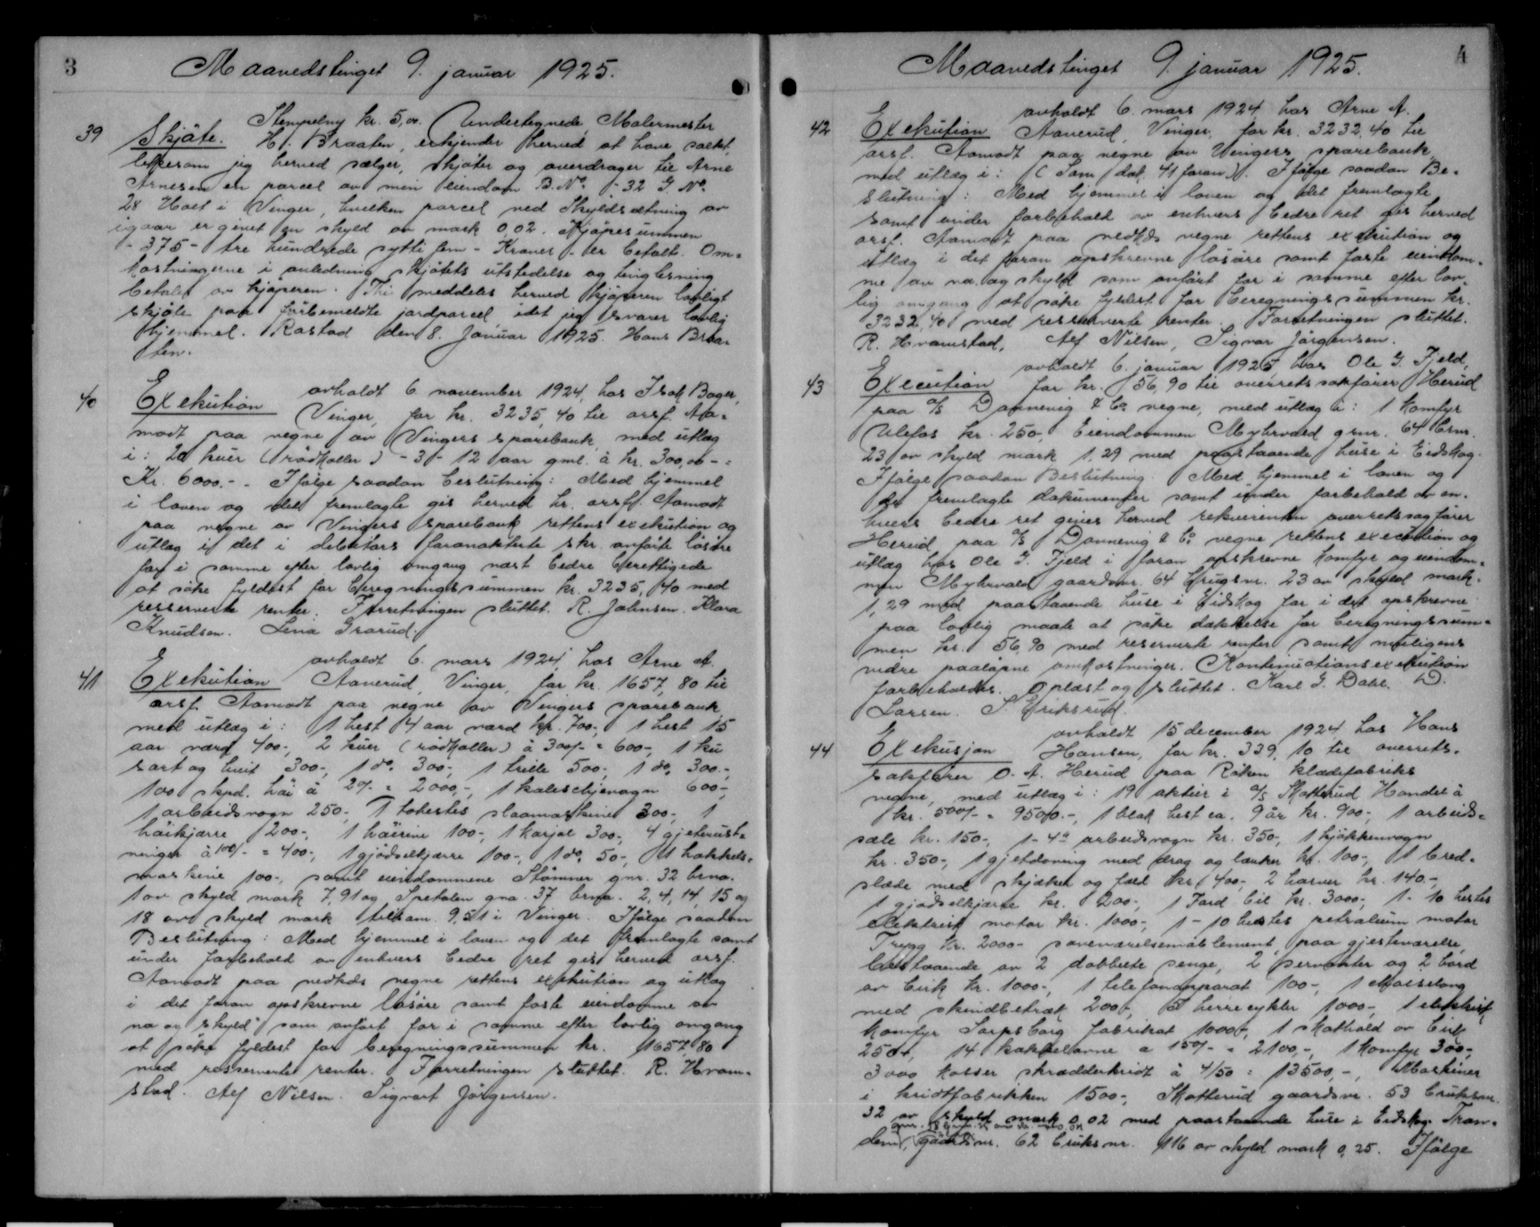 3
Maanedstinget 9. januar 1925.
39 Skjøte. Stempelmy kr. 5,00. Undertegnede Malermester
H. Braaten, erkjender herved at have solgt,
likesom jeg herved sælger, skjøter og overdrager til Arne
Arnesen en parcel av min eiendom B.No. - 32 G.No.
28 Holt i Vinger, hvilken parcel ved Skyldsætning av
igaar er givet en skyld av mark 0,02. Kjøpesummen
- 375 - tre hundrede sytti fem - Kroner - er betalt. Om-
kostningerne i anledning skjøtets utstedelse og tinglesning
betales av kjøperen. Thi meddeles herved kjøperen lovligt
skjøte paa førbemeldte jordparcel idet jeg svarer lovlig
hjemmel. Rastad den 8. Januar 1925. Hans Braa-
ten.
40 Exekution avholdt 6. november 1924, hos Isak Bager,
Vinger, for kr. 3235,40 til orsf. Aa-
modt paa vegne av Vingers sparebank, med utlæg
i: 20 kuer (rødkoller) - 3 - 12 aar gml. à kr. 300,00 - =
Kr. 6000.-. Ifølge saadan beslutning: Med hjemmel
i loven og det fremlagte gis herved hr. orsf. Aamodt
paa vegne av Vingers sparebank rettens exekution og
utlæg i det i debitors foranaførte skr. anførte løsøre
for i samme efter lovlig omgang næst bedre berettigede
at søke fyldest for beregningssummen kr. 3235,40 med
resserverte renter. Forretningen sluttet. R. Johnsen. Klara
Knudsen. Lina Grarud.
41 Exekution avholdt 6. mars 1924, hos Arne A.
Aanerud, Vinger, for kr. 1657,80 til
orsf. Aamodt paa vegne av Vingers sparebank
med utlæg i: 1 hest 4 aar værd kr. 700,-, 1 hest 15
aar værd 400-, 2 kuer (rødkoller) à 300/- = 600-, 1 ku
sort og hvit 300-, 1 do. 300-, 1 trille 500-, 1 do. 300.-,
100 skpd. høi à 20/- = 2000,-, 1 kaleschjevogn 600-,
1 arbeidsvogn 250-, 1 tohestes slaamaskine 300-, 1
høikjærre 200-, 1 høirive 100-, 1 karjol 300-, 4 gjeterust-
ninger à 100/- = 400-, 1 gjødselkjærre 100-, 1 do. 50-, 1 hakkels-
maskine 100-, samt eiendommene Stømner gnr. 32 brno.
1 av skyld mark 7,91 og Spetalen gno. 37 brno. 2, 4, 14, 15 og
18 av skyld mark tilsam. 9,51 i Vinger. Ifølge saadan
Beslutning: Med hjemmel i loven og det fremlagte samt
under forbehold av enhvers bedre ret gis herved orsf.
Aamodt paa nedkds vegne rettens exekution og utlæg
i det foran opskrevne løsøre samt faste eiendomme av
no og skyld som anført for i samme efter lovlig omgang
at søke fyldest for beregningssummen kr. 1657,80
med resserverte renter. Forretningen sluttet. R. Hvam-
stad. Alf Nilsen. Sigvart Jørgensen.
4
Maanedstinget 9. januar 1925.
42 Exekution avholdt 6. mars 1924, hos Arne A.
Aanerud, Vinger, for kr. 3232,40 til
orsf. Aamodt paa vegne av Vingers sparebank
med utlæg i: (Som dok. 41 foran). Ifølge saadan Be-
slutning: Med hjemmel i loven og det fremlagte
samt under forbehold av enhvers bedre ret gis herved
orsf. Aamodt paa nedkds vegne rettens exekution og
utlæg i det foran opskrevne løsøre samt faste eiendom-
me av no. og skyld som anført for i samme efter lov-
lig omgang at søke fyldest for beregningssummen kr.
3232,40 med resserverte renter. Forretningen sluttet.
R. Hvamstad, Alf Nilsen, Sigvar Jørgensen.
43 Execution avholdt 6. januar 1925, hos Ole G. Fjeld,
for kr. 56,90 til overretssakfører Herud
paa A/S Dannevig & Co. vegne, med utlæg i: 1 komfyr
Ulefos kr. 250,- Eiendommen Myhrvold gnr. 64 brnr.
23 av skyld mark 1,29 med paastaaende huse i Eidskog.
Ifølge saadan Beslutning. Med hjemmel i loven og
de fremlagte dokumenter samt under forbehold av en-
hvers bedre ret gives herved rekvirenten overretssagfører
Herud paa A/S Dannevig & Co. vegne rettens execution og
utlæg hos Ole G. Fjeld i foran opskrevne komfyr og eiendom-
men Myhrvold gaardsnr. 64 bruksnr. 23 av skyld mark
1,29 med paastaaende huse i Eidskog for i det opskrevne
paa lovlig maate at søke dækkelse for beregningssum-
men kr. 56,90 med reserverte renter samt muligens
videre paaløpne omkostninger. Kontinuationsexekution
forbeholdes. Oplæst og sluttet. Karl G. Dahl. D.
Larsen. S. Eriksrud.
44 Exekusjon avholdt 15 december 1924 hos Hans
Hansen, for kr. 339,10 til overrets-
sakfører O. A. Herud paa Røken klædefabriks
vegne, med utlæg i: 19 aktier i A/S Skotterud Handel à
kr. 500/- = 9500.-, 1 blak hest ca. 9 år kr. 900-, 1 arbeids-
sæle kr. 150-, 1 - 4 arbeidsvogn kr. 350-, 1 kjøkkenvogn
kr. 350-, 1 gjetdoning med drag og lænker kr. 100-, 1 bred-
slæde med skjæker og fæl kr. 400-, 2 harver kr. 140-,
1 gjødselkjærre kr. 200-, 1 Ford bil kr. 3000-, 1 - 10 hestes
elektrisk motor kr. 1000-, 1 - 10 hestes petroleum motor
Trygg kr. 2000- soveværelsemøblement paa gjesteværelse,
bestaaende av 2 dobbelte senge, 2 servanter og 2 bord
av birk kr. 1000-, 1 telefonapparat 100-, 1 chaiselong
med skindbetræk 200-, 5 herrecykler 1000-, 1 elektrisk
komfyr Sarpsborg fabrikat 1000-, 1 skathold av birk
250-, 14 kakkelovne a 150/- = 2100,-, 1 komfyr 300-,
3000 kasser skrædderkridt à 4/50 = 13500,-, Maskiner
i kridtfabrikken 1500-, Skotterud gaardsnr. 53 bruksnr.
32 av skyld mark 0,02 med paastaaende huse i Eidskog. Tran-
dem, gaardsnr. 62 bruksnr. 116 av skyld mark 0,25. Ifølge